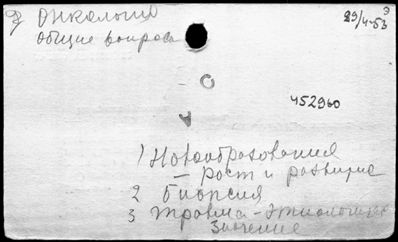 Онкология
общие вопросы
29/4-53
452960
1 Новообразования
— рост и развитие
2 биопсия
3 травма - этиологическ
Значение